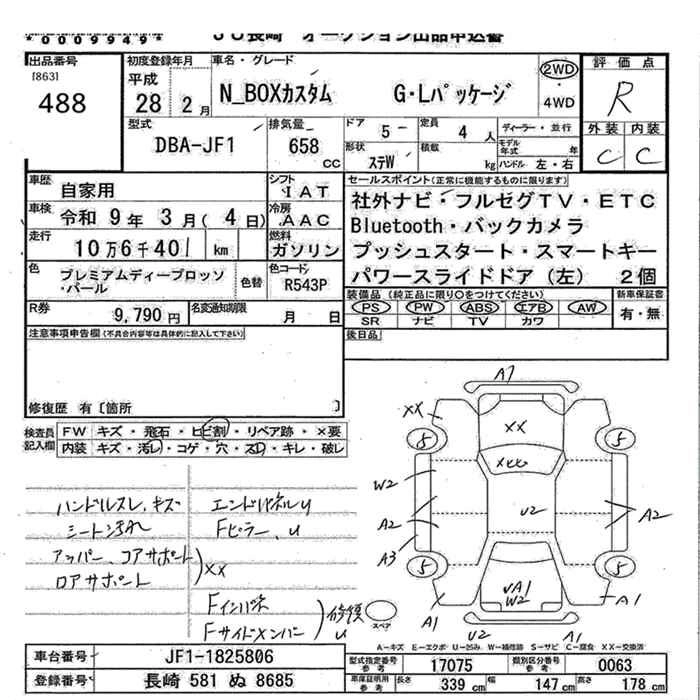 *0009949*
JU長崎 オークション出品申込書
出品番号 [863] 488
初度登録年月 平成 28年 2月
車名・グレード N_BOXカスタム G・Lパッケージ
2WD・4WD
評価点 R
外装 C 内装 C
型式 DBA-JF1
排気量 658 CC
ドア 5 定員 4 人
形状 ステW 積載 kg
ディーラー・並行
モデル年式 年
ハンドル 左・右
車歴 自家用
シフト IAT
車検 令和 9年 3月(4日)
冷房 AAC
走行 10万6千401 km
燃料 ガソリン
色 プレミアムディープロッソ・パール 色替
色コード R543P
R券 9,790 円
名変通知期限 月 日
セールスポイント(正常に機能するものに限ります)
社外ナビ・フルセグTV・ETC
Bluetooth・バックカメラ
プッシュスタート・スマートキー
パワースライドドア(左) 2個
装備品(純正品に限り○をつけてください)
PS PW ABS エアB AW
SR ナビ TV カワ
新車保証書 有・無
後日品
注意事項申告欄(不具合内容等は具体的に記入して下さい)
修復歴 有〔箇所 〕
検査員記入欄
FW キズ・飛石・ヒビ割・リペア跡・×要
内装 キズ・汚レ・コゲ・穴・スレ・キレ・破レ
ハンドルスレ、キズ
シート汚れ
アッパー、コアサポート
ロアサポート
XX
エンドパネルU
Fピラー、U
Fインパネ
Fサイドメンバー
修復 U
A7
XX
XX
5
5
W2
U2
A2
A2
A3
5
5
A1
A1
√A1
W2
U2
A1
スペア
A−キズ E−エクボ U−凹み W−補修跡 S−サビ C−腐食 XX−交換済
車台番号 JF1-1825806
登録番号 長崎 581 ぬ 8685
型式指定番号参考 17075
類別区分番号参考 0063
車庫証明用参考 長さ 339 cm 幅 147 cm 高さ 178 cm